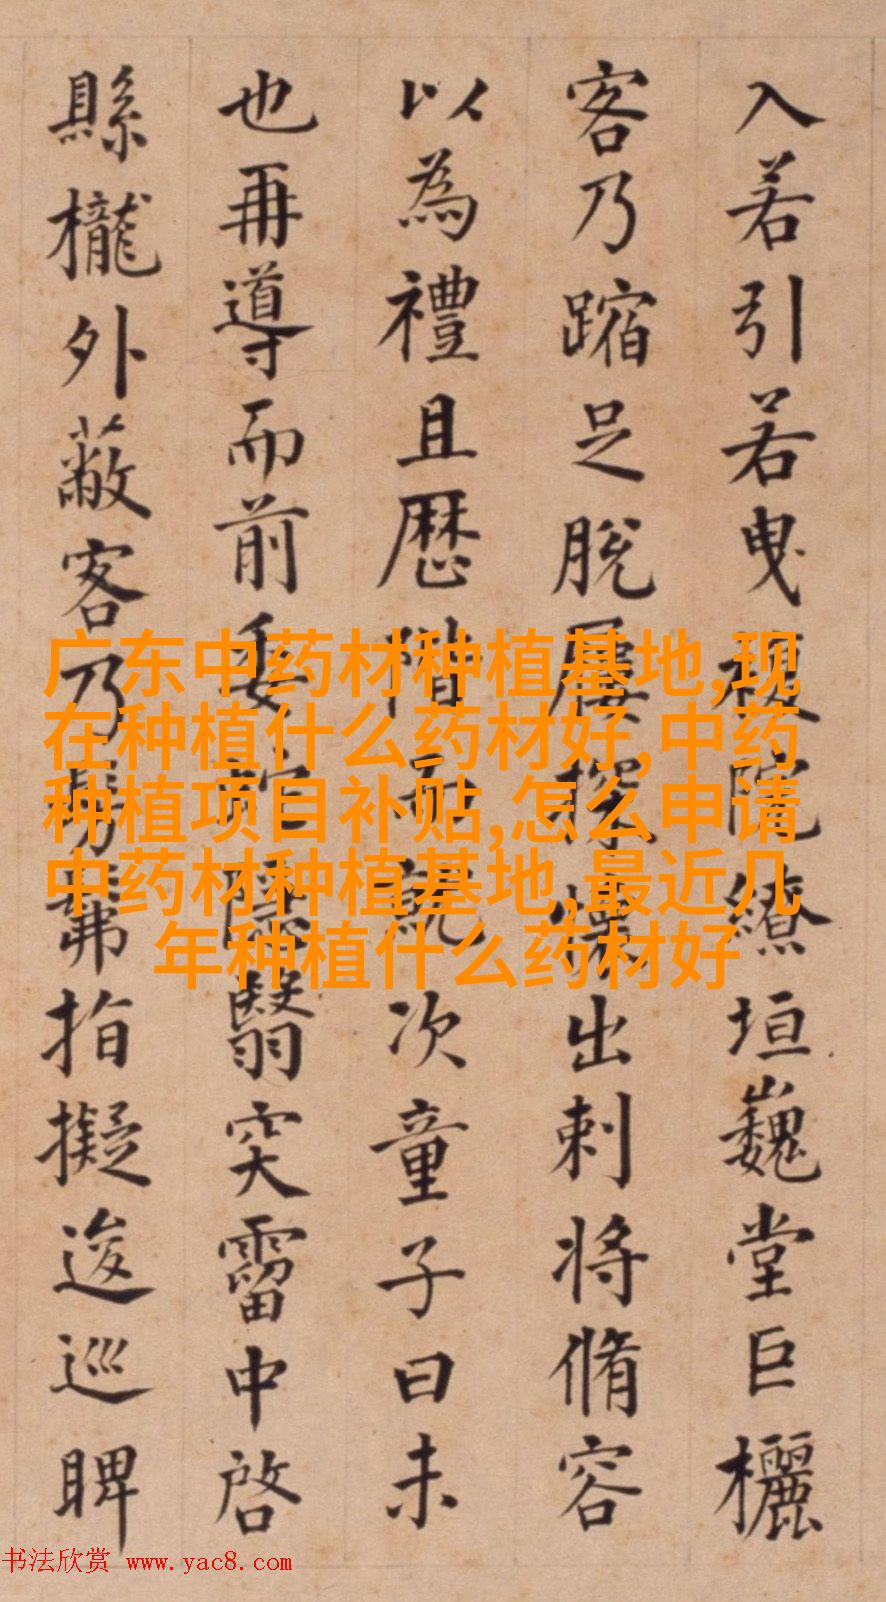 入若引若曳複院繚垣巍堂巨欐
客乃蹜足脫屨探懷出刺將脩容
以為禮且歷階而就次童子曰未
也再導而前委蛇隱翳突霤中啓
縣櫳外蔽客乃髣髴指擬逡巡睥
广东中药材种植基地,现
在种植什么药材好,中药
种植项目补贴,怎么申请
中药材种植基地,最近几
年种植什么药材好
书法欣赏 www.yac8.com